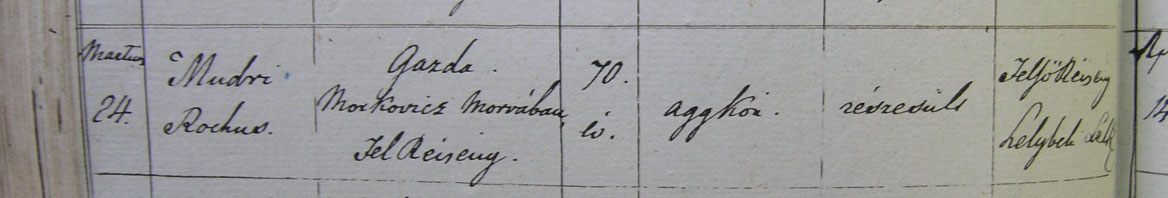 Martius
24.
Mudri
Rochus.
Gazda.
Morkovicz Morvában,
Fel Réiseny.
70.
év.
aggkór.
részesült
Felső Réiseny
helybeli
14